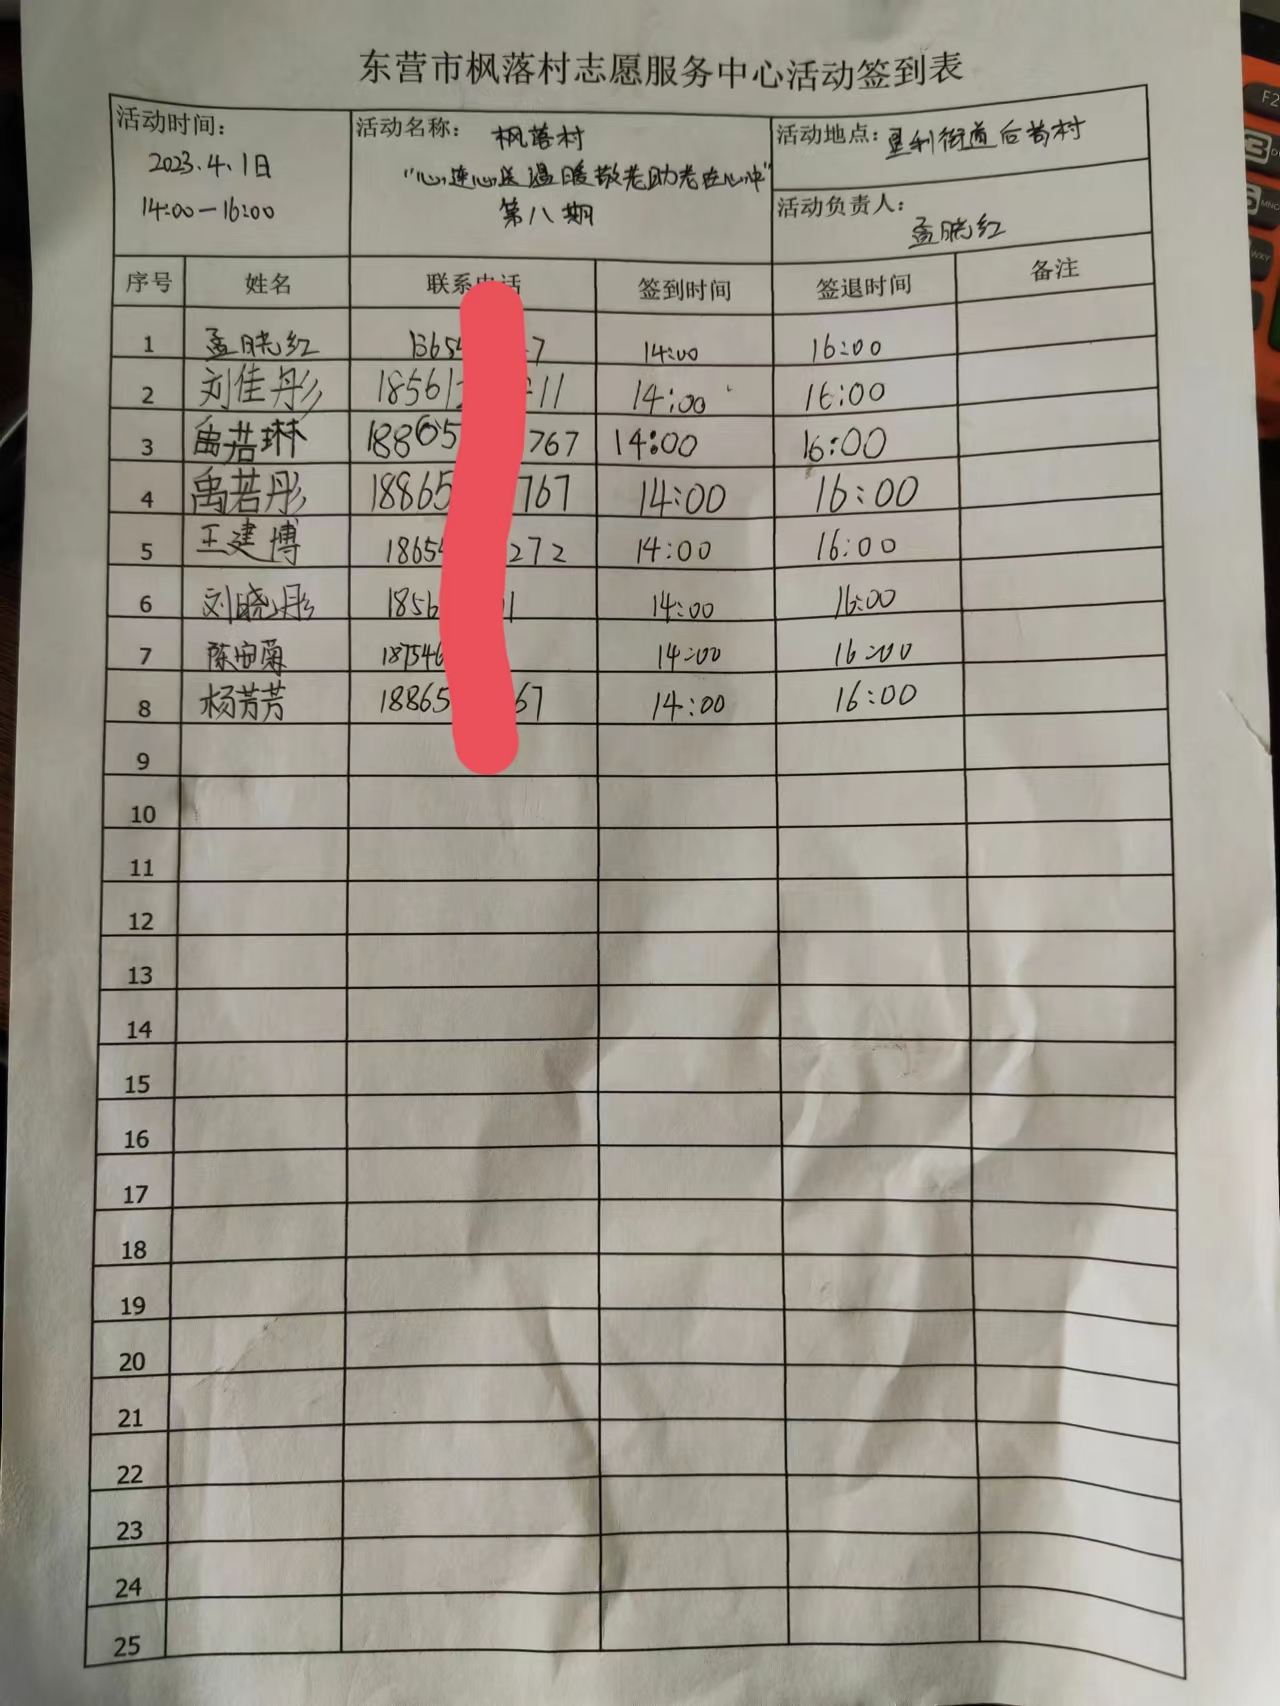 东营市枫落村志愿服务中心活动签到表
活动时间: 2023.4.1日 14:00—16:00
活动名称: 枫落村 "心连心送温暖敬老助老在心中" 第八期
活动地点: 垦利街道后苟村
活动负责人: 孟晓红
序号 姓名 联系电话 签到时间 签退时间 备注
1 孟晓红 1365 7 14:00 16:00
2 刘佳彤 18561 11 14:00 16:00
3 禹若琳 18865 767 14:00 16:00
4 禹若彤 18865 767 14:00 16:00
5 王建博 1865 272 14:00 16:00
6 刘晓彤 1856 1 14:00 16:00
7 陈安菊 187546 14:00 16:00
8 杨芳芳 18865 67 14:00 16:00
9
10
11
12
13
14
15
16
17
18
19
20
21
22
23
24
25